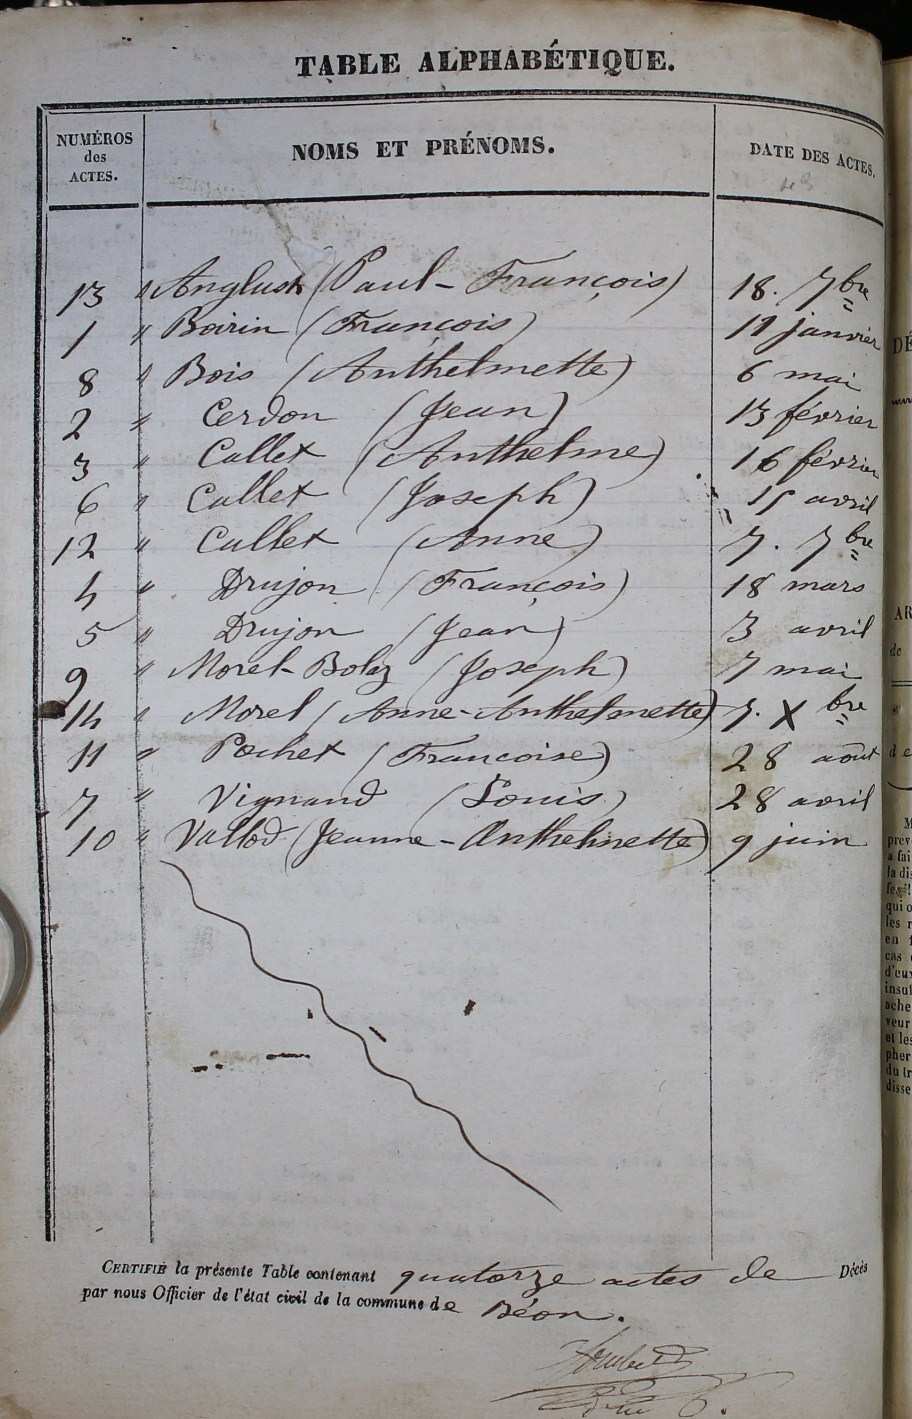 TABLE ALPHABÉTIQUE.
NUMÉROS
des
ACTES.
NOMS ET PRÉNOMS.
DATE DES ACTES.
13 " (Paul-François) 18. 7bre
1 " Boirin (François) 11 janvier
8 " Bois (Anthelmette) 6 mai
2 " Cerdon (Jean) 13 février
3 " Callet (Anthelme) 16 février
6 " Callet (Joseph) 15 avril
12 " Callet (Anne) 7. 7bre
4 " Drujon (François) 18 mars
5 " Drujon (Jean) 3 avril
9 " Morel-Bolaz (Joseph) 7 mai
14 " Morel (Anne-Anthelmette) 7. Xbre
11 " Pochet (Francoise) 28 août
7 " Vignand (Louis) 28 avril
10 " Vallod (Jeanne-Anthelmette) 9 juin
CERTIFIÉ la présente Table contenant quatorze actes de Décès
par nous Officier de l'état civil de la commune de Béon.